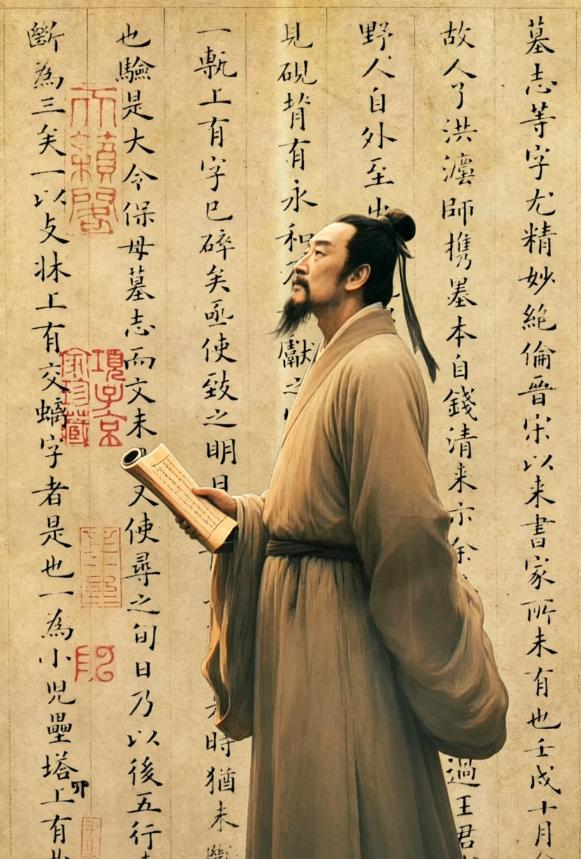 墓志等字尤精妙絶倫晉宋以来書家所未有也壬戌十月
故人了洪灋師攜墨本自錢清来示余過王君
野人自外至出
見硯背有永和獻之
一甎上有字已碎矣亟使致之明日時猶未
也驗是大令保母墓志而文未又使尋之旬日乃以後五行
斷為三矣一以支牀上有交螭字者是也一為小児壘塔上有
天籟閣
項子京家珍藏